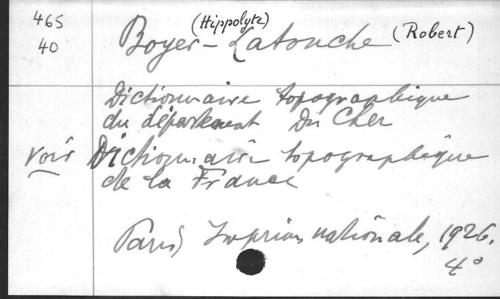 465
40
Boyer (Hippolyte) - Latouche (Robert)
Dictionnaire topographique
du département Du Cher
voir Dictionnaire topographique
de la France
Paris, Imprim nationale, 1926.
4°